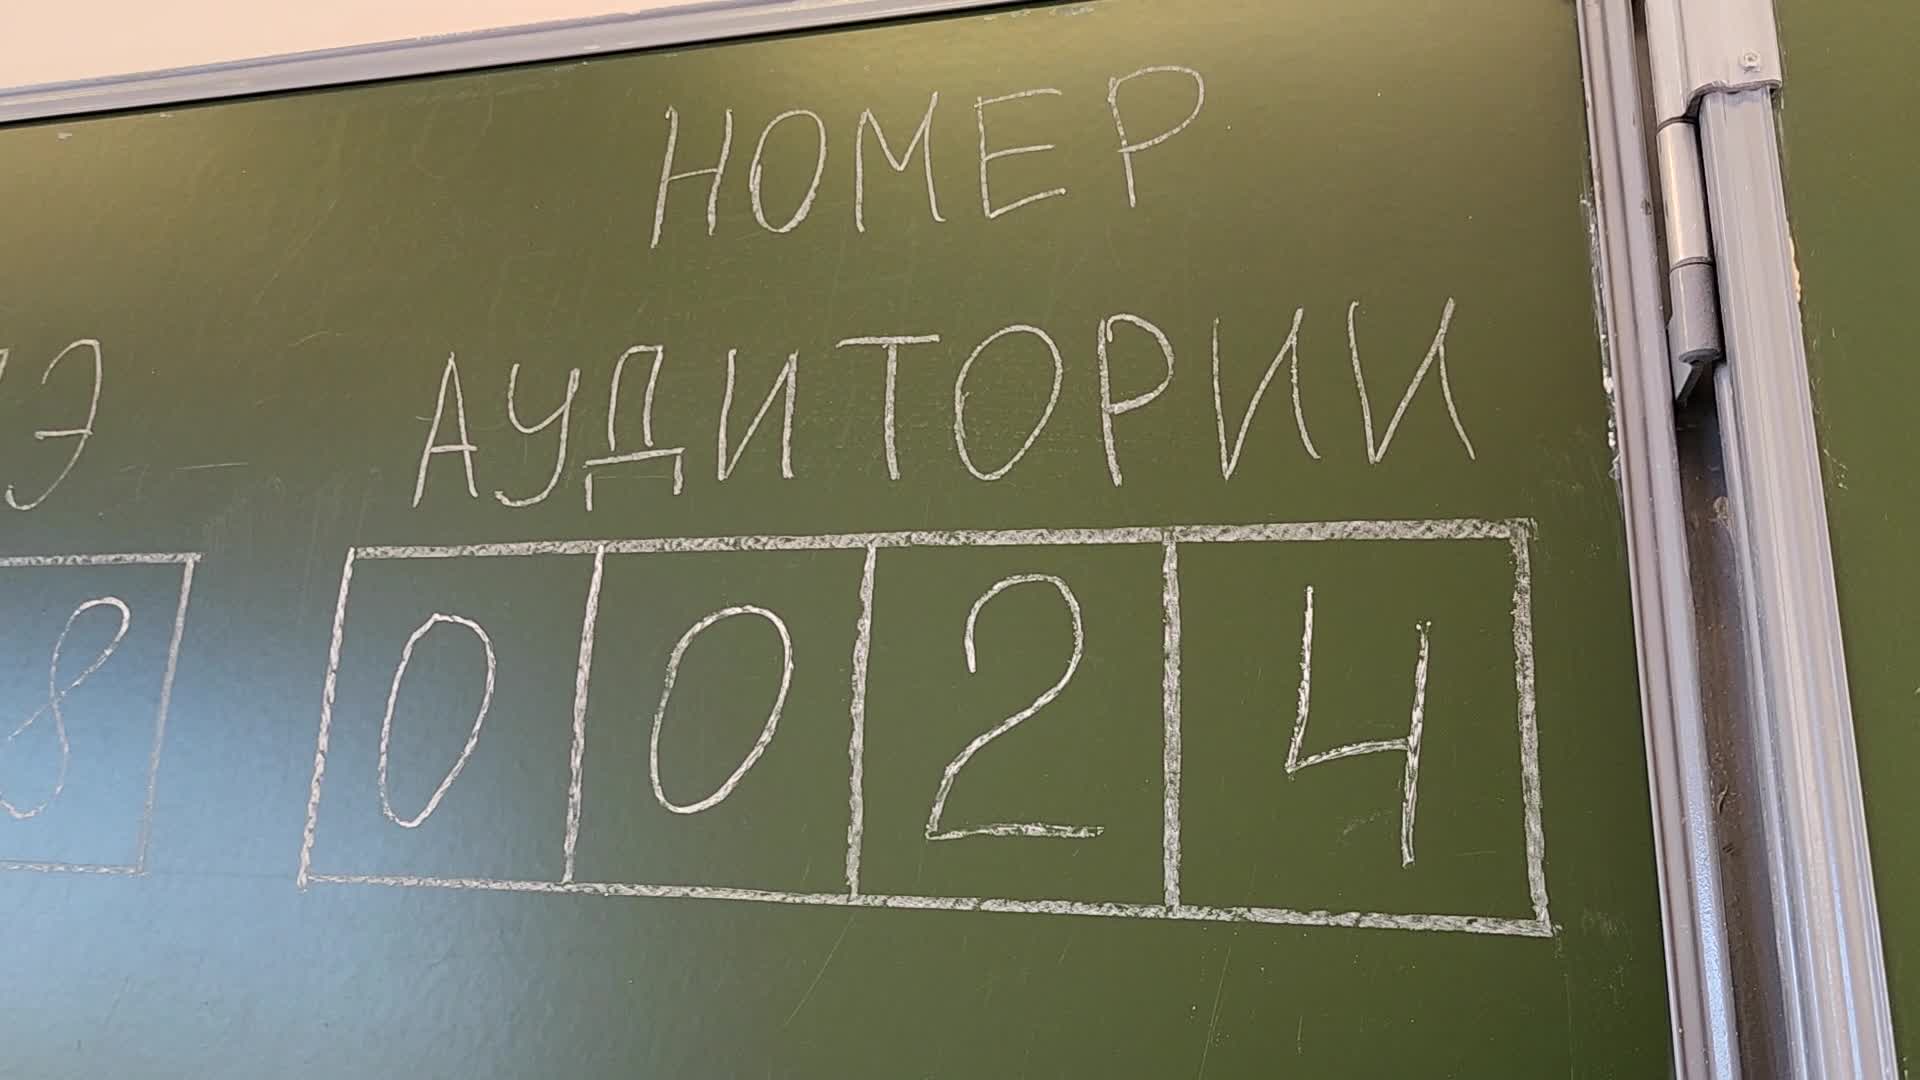 НОМЕР
АУДИТОРИИ
0024
Э
8